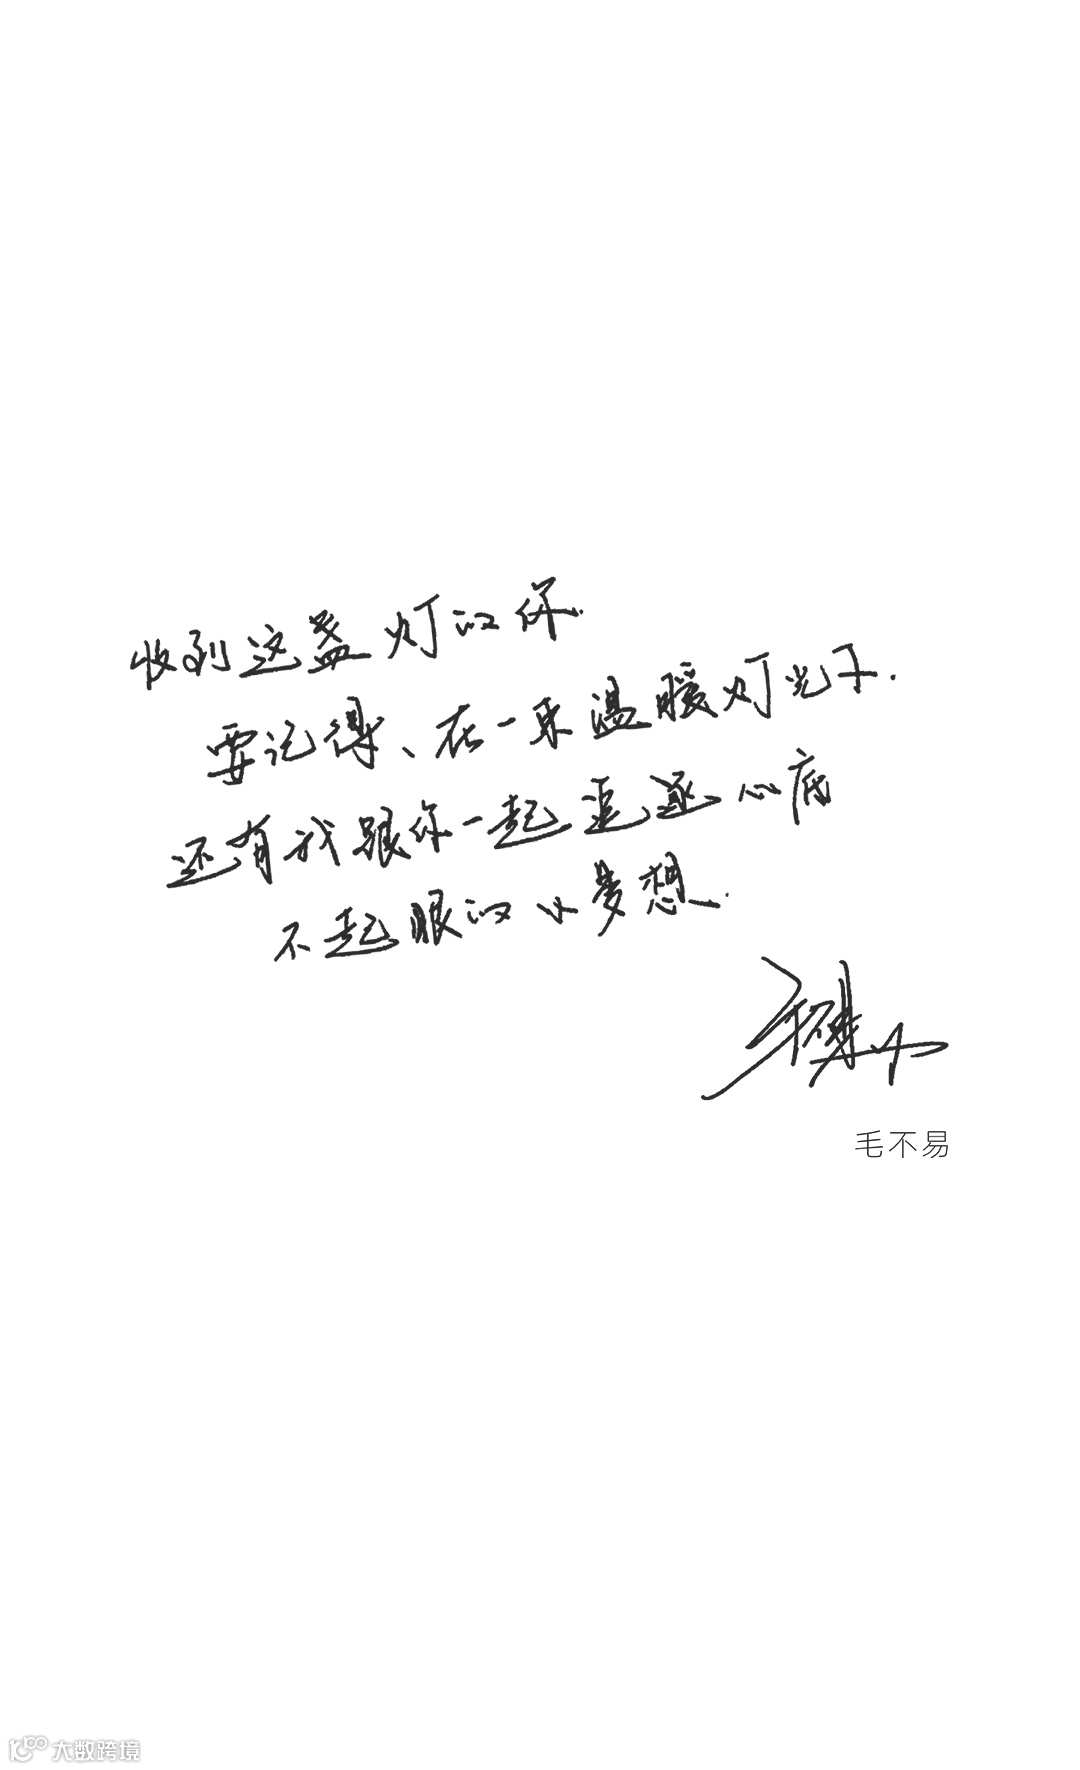 收到这盏灯的你.
要记得、在一束温暖灯光下.
还有我跟你一起追逐心底
不起眼的小梦想.
毛不易
大数跨境